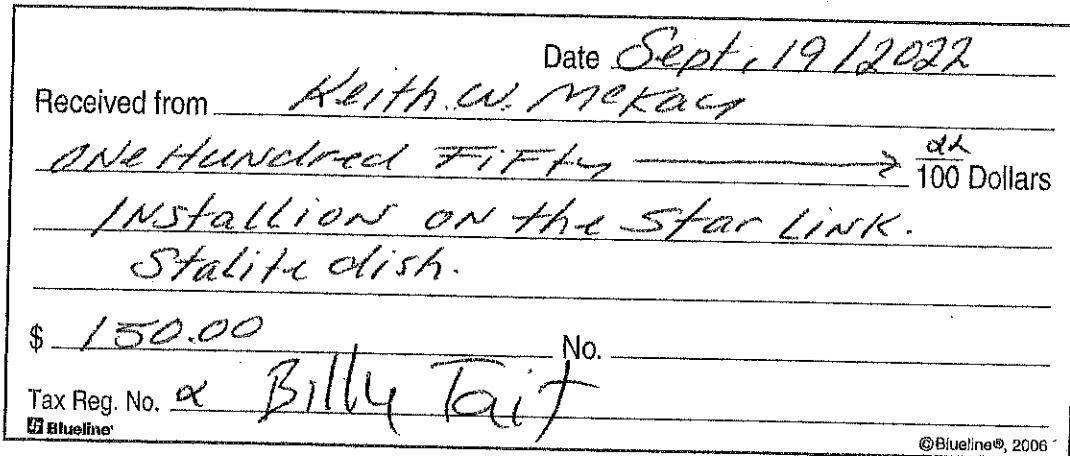 Date Sept. 19/2022
Received from Keith. W. McKay
ONe HuNdred FiFty 100 Dollars
INstallioN oN the Star LiNK.
Stalite dish.
$ 150.00 No.
Tax Reg. No. Billy Tait
Blueline ©Blueline®, 2006